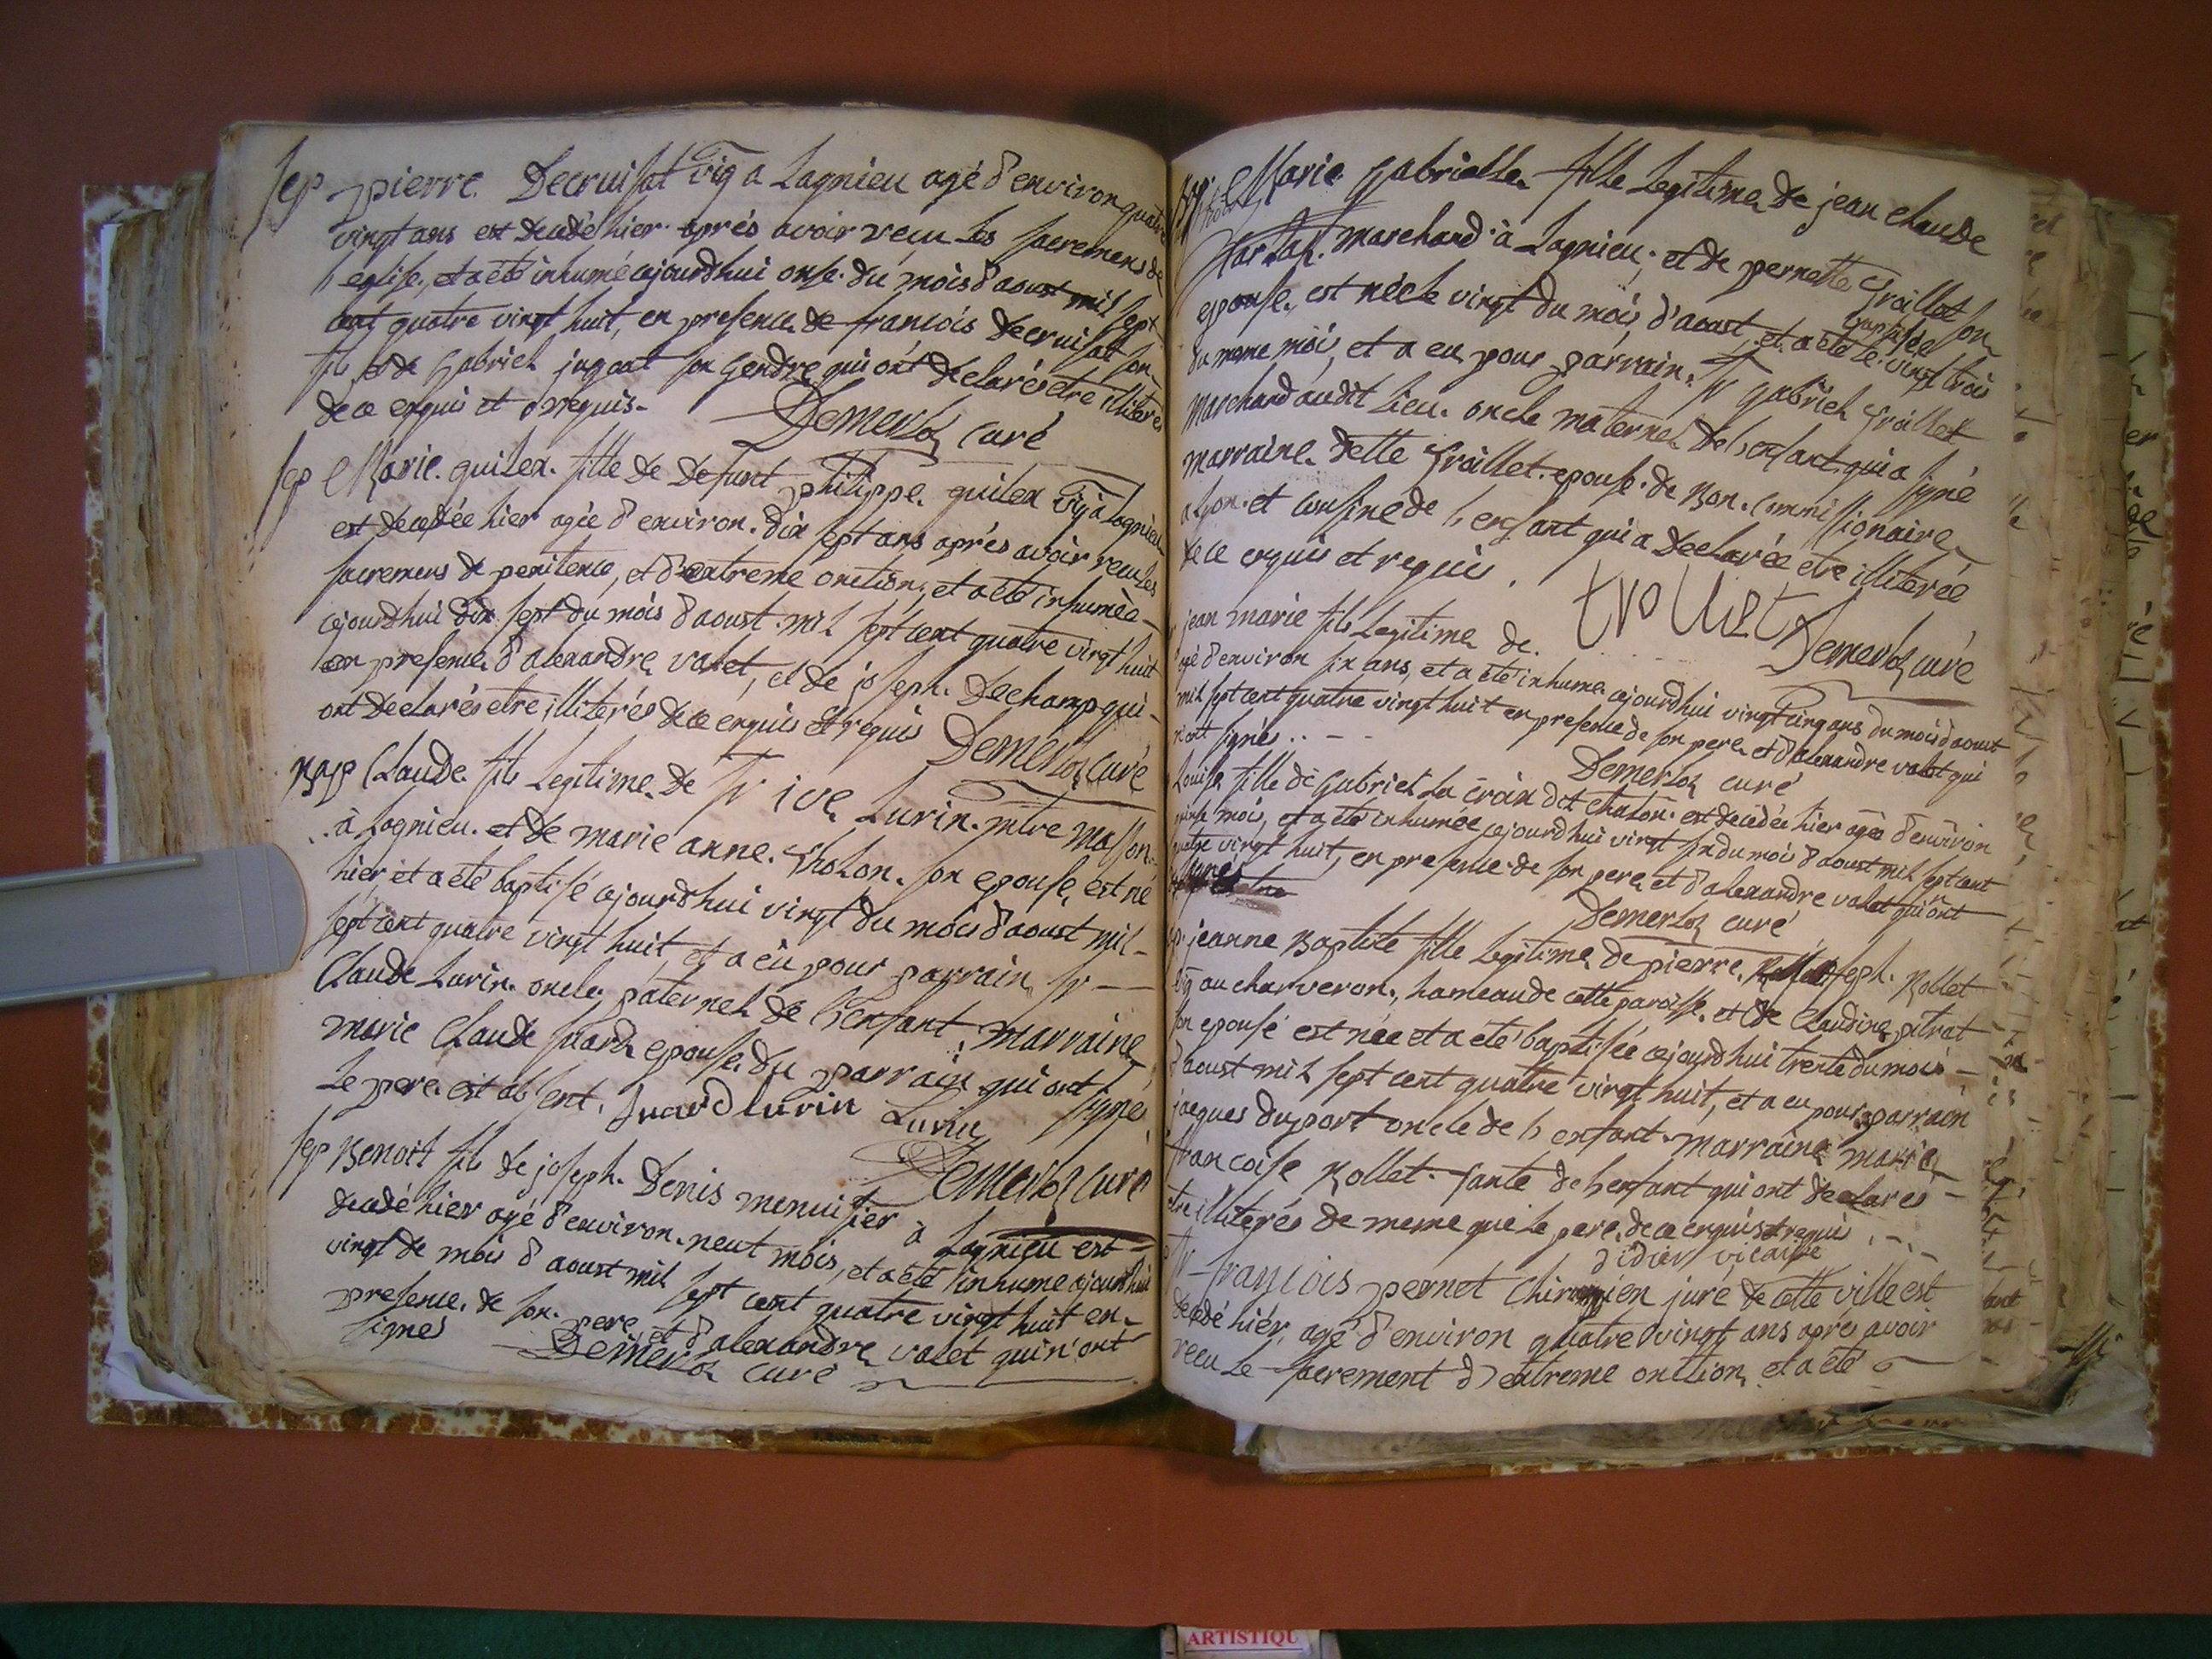 sep pierre Decruisat vig a Lagnieu agé d'environ quatre
vingt ans est decedé hier aprés avoir recu les sacremens de
l'eglise, et a été inhumé cejourdhui onse du mois d'aoust mil sept
cent quatre vingt huit, en presence de francois decruisat son
fils et de Gabriel jugeat son gendre qui ont declarés etre illiterés
de ce enquis et requis
Demerloz curé
sep Marie guilex fille de defunt philippe guilex vig à Lagnieu
est decedée hier agée d'environ dix sept ans aprés avoir recu les
sacremens de penitence, et d'extreme onction, et a été inhumée
cejourdhui dix sept du mois d'aoust mil sept cent quatre vingt huit
en presence d'alexandre valet, et de joseph Dechamp qui
ont declarés etre illiterés de ce enquis et requis Demerloz curé
Bap Claude fils legitime de Sr ive Lurin mtre masson
à Lagnieu et de marie anne Cholon son epouse, est né
hier et a été baptisé cejourdhui vingt du mois d'aoust mil
sept cent quatre vingt huit, et a eu pour parrain Sr
Claude Lurin oncle paternel de l'enfant marraine
marie Claude suard epouse du parrain qui ont signé
Le pere est absent. suard lurin Lurin
Demerloz curé
sep Benoit fils de joseph Denis menuisier à Lagnieu est
decedé hier agé d'environ neuf mois, et a été inhumé cejourdhui
vingt de mois d'aoust mil sept cent quatre vingt huit en
presence de son pere et d'alexandre valet qui n'ont
signés Demerloz curé
Marie Gabrielle fille legitime de jean claude
marchand à Lagnieu, et de pernette trollet son
epouse, est née le vingt du mois d'aoust, et a été baptisée le vingt trois
du meme mois, et a eu pour parrain Sr Gabriel trollet
marchand audit lieu oncle maternel de l'enfant qui a signé
marraine delle trollet epouse de Bon commissionaire
a lyon et cousine de l'enfant qui a declarée etre illiterée
de ce enquis et requis. trolliet Demerloz curé
jean marie fils legitime de
agé d'environ six ans, et a été inhumé cejourdhui vingt cinq ans du mois d'aoust
mil sept cent quatre vingt huit en presence de son pere et d'alexandre valet qui
n'ont signés
Demerloz curé
Louise fille de Gabriel La croix dit chalon est decedée hier agée d'environ
mois, et a été inhumée cejourdhui vingt six du mois d'aoust mil sept cent
quatre vingt huit, en presence de son pere et d'alexandre valet qui n'ont
signés
Demerloz curé
jeanne Baptiste fille legitime de pierre joseph Rollet
vig au charveron, hameau de cette paroisse, et de Claudine pitrat
son epouse est née et a été baptisée cejourdhui trente du mois
d'aoust mil sept cent quatre vingt huit, et a eu pour parrain
jacques duport oncle de l'enfant marraine marie
francoise Rollet tante de l'enfant qui ont declarés
etre illiterés de meme que le pere de ce enquis et requis
didier vicaire
Sr francois pernet chirurgien juré de cette ville est
decedé hier, agé d'environ quatre vingt ans apres avoir
recu le sacrement d'extreme onction et a été
ARTISTIQU